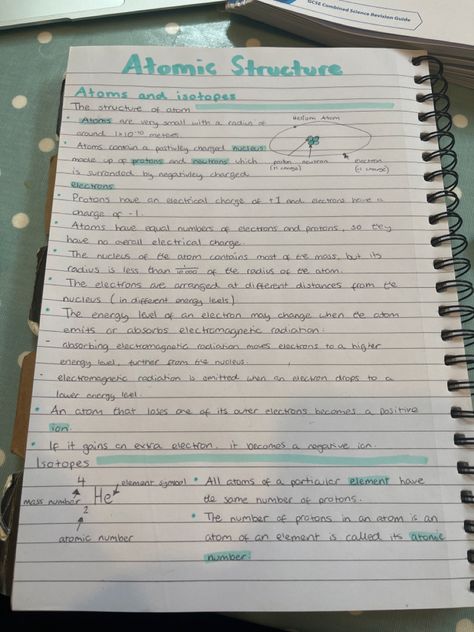 GCSE Combined Science Revision Guide
Atomic Structure
Atoms and isotopes
The structure of atom
• Atoms are very small with a radius of
around 1×10⁻¹⁰ metres.
• Atoms contain a postivley charged nucleus
made up of protons and neutrons which
is surronded by negativley charged
electrons
Helium Atom
proton
(+1 charge)
neutron
electron
(-1 charge)
• Protons have an electrical charge of +1 and electrons have a
charge of -1.
• Atoms have equal numbers of electrons and protons, so they
have no overall electrical charge.
• The nucleus of the atom contains most of the mass, but its
radius is less than 1/10000 of the radius of the atom.
• The electrons are arranged at different distances from the
nucleus (in different energy levels)
• The energy level of an electron may change when the atom
emits or absorbs electromagnetic radiation.
- absorbing electromagnetic radiation moves electrons to a higher
energy level, further from the nucleus.
- electromagnetic radiation is emitted when an electron drops to a
lower energy level.
• An atom that loses one of its outer electrons becomes a positive
ion.
• If it gains an extra electron, it becomes a negative ion.
Isotopes
4
mass number
He
element symbol
2
atomic number
• All atoms of a particular element have
the same number of protons.
• The number of protons in an atom is an
atom of an element is called its atomic
number.